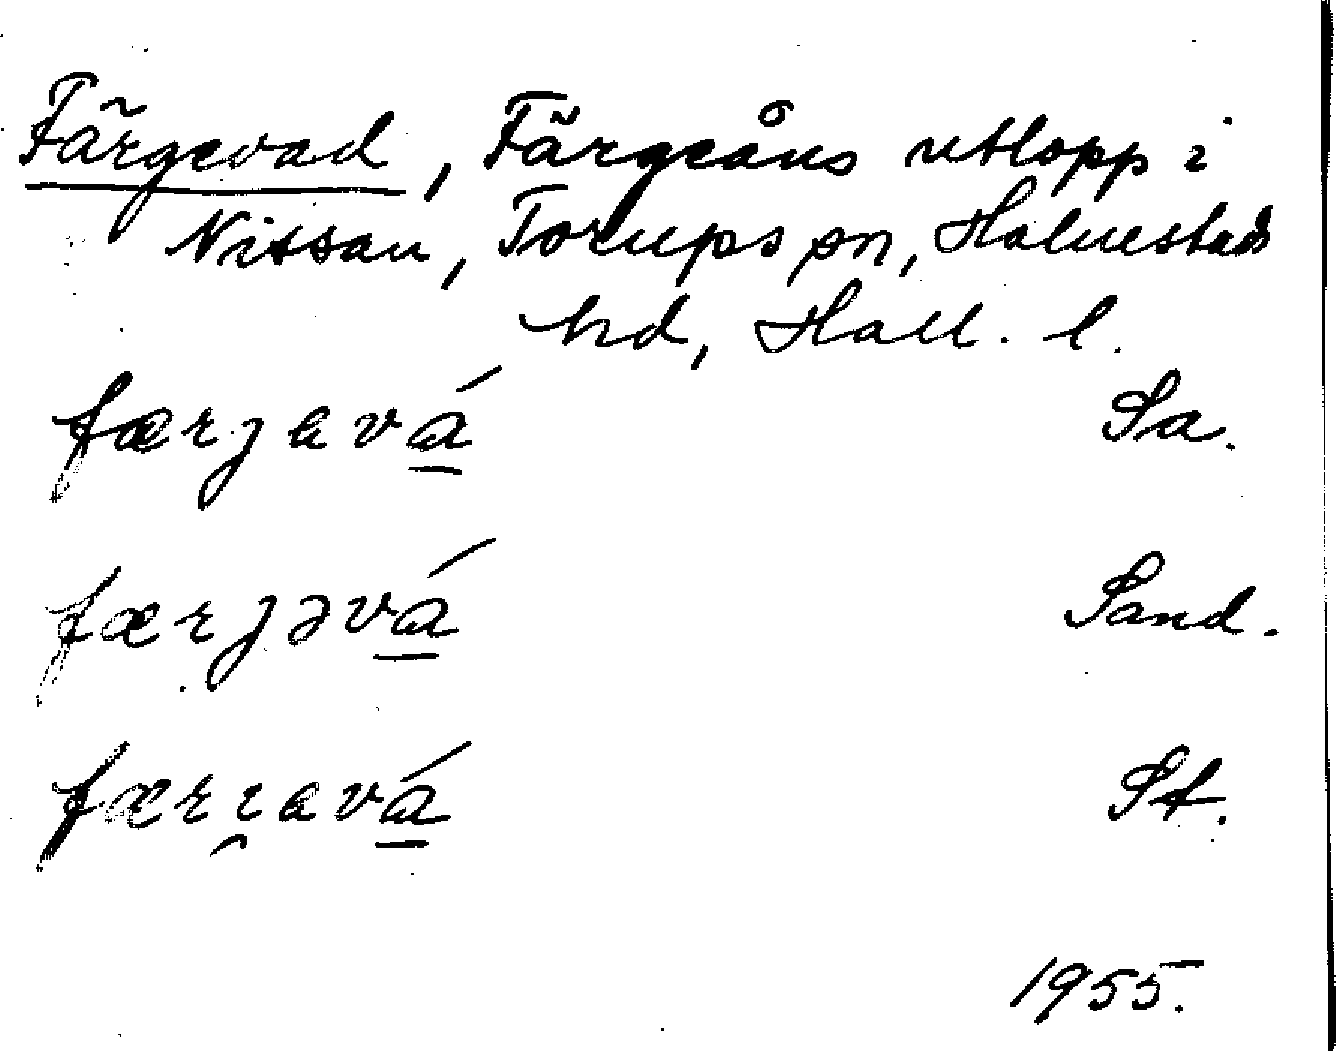 Färgevad, Färgeåns utlopp i
Nissan, Torups sn, Halmstads
hd, Hall. l.
færjavá Sa.
færjəvá Sand.
færi̯avá St.
1955.